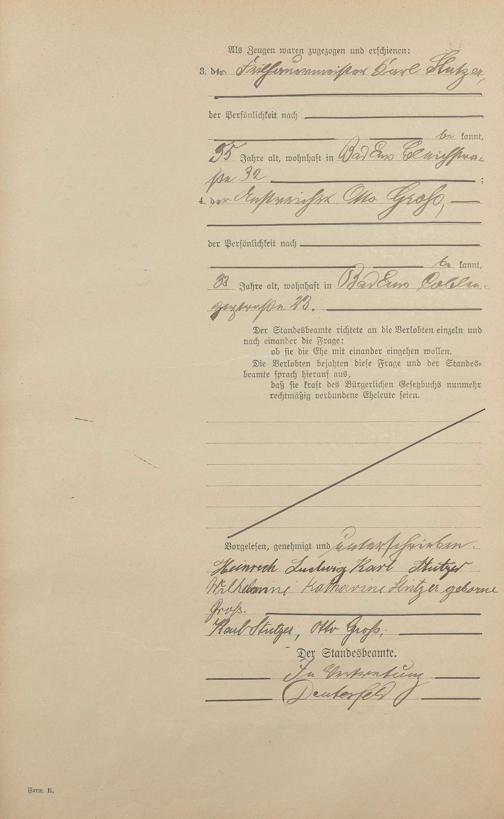 Als Zeugen waren zugezogen und erschienen:
3. der Feilhauermeister Karl Stutzer,
der Persönlichkeit nach
be kannt,
55 Jahre alt, wohnhaft in Bad Ems Bleichstra-
ße 32 ;
4. der Anstreicher Otto Groß,
der Persönlichkeit nach
be kannt,
33 Jahre alt, wohnhaft in Bad Ems Coblen-
zerstraße 23.
Der Standesbeamte richtete an die Verlobten einzeln und
nach einander die Frage:
ob sie die Ehe mit einander eingehen wollen.
Die Verlobten bejahten diese Frage und der Standes-
beamte sprach hierauf aus,
daß sie kraft des Bürgerlichen Gesetzbuchs nunmehr
rechtmäßig verbundene Eheleute seien.
Vorgelesen, genehmigt und unterschrieben.
Heinrich Ludwig Karl Stutzer
Wilhelmine Katharine Stutzer geborne
Groß.
Karl Stutzer, Otto Groß,
Der Standesbeamte.
In Vertretung
Form. B.